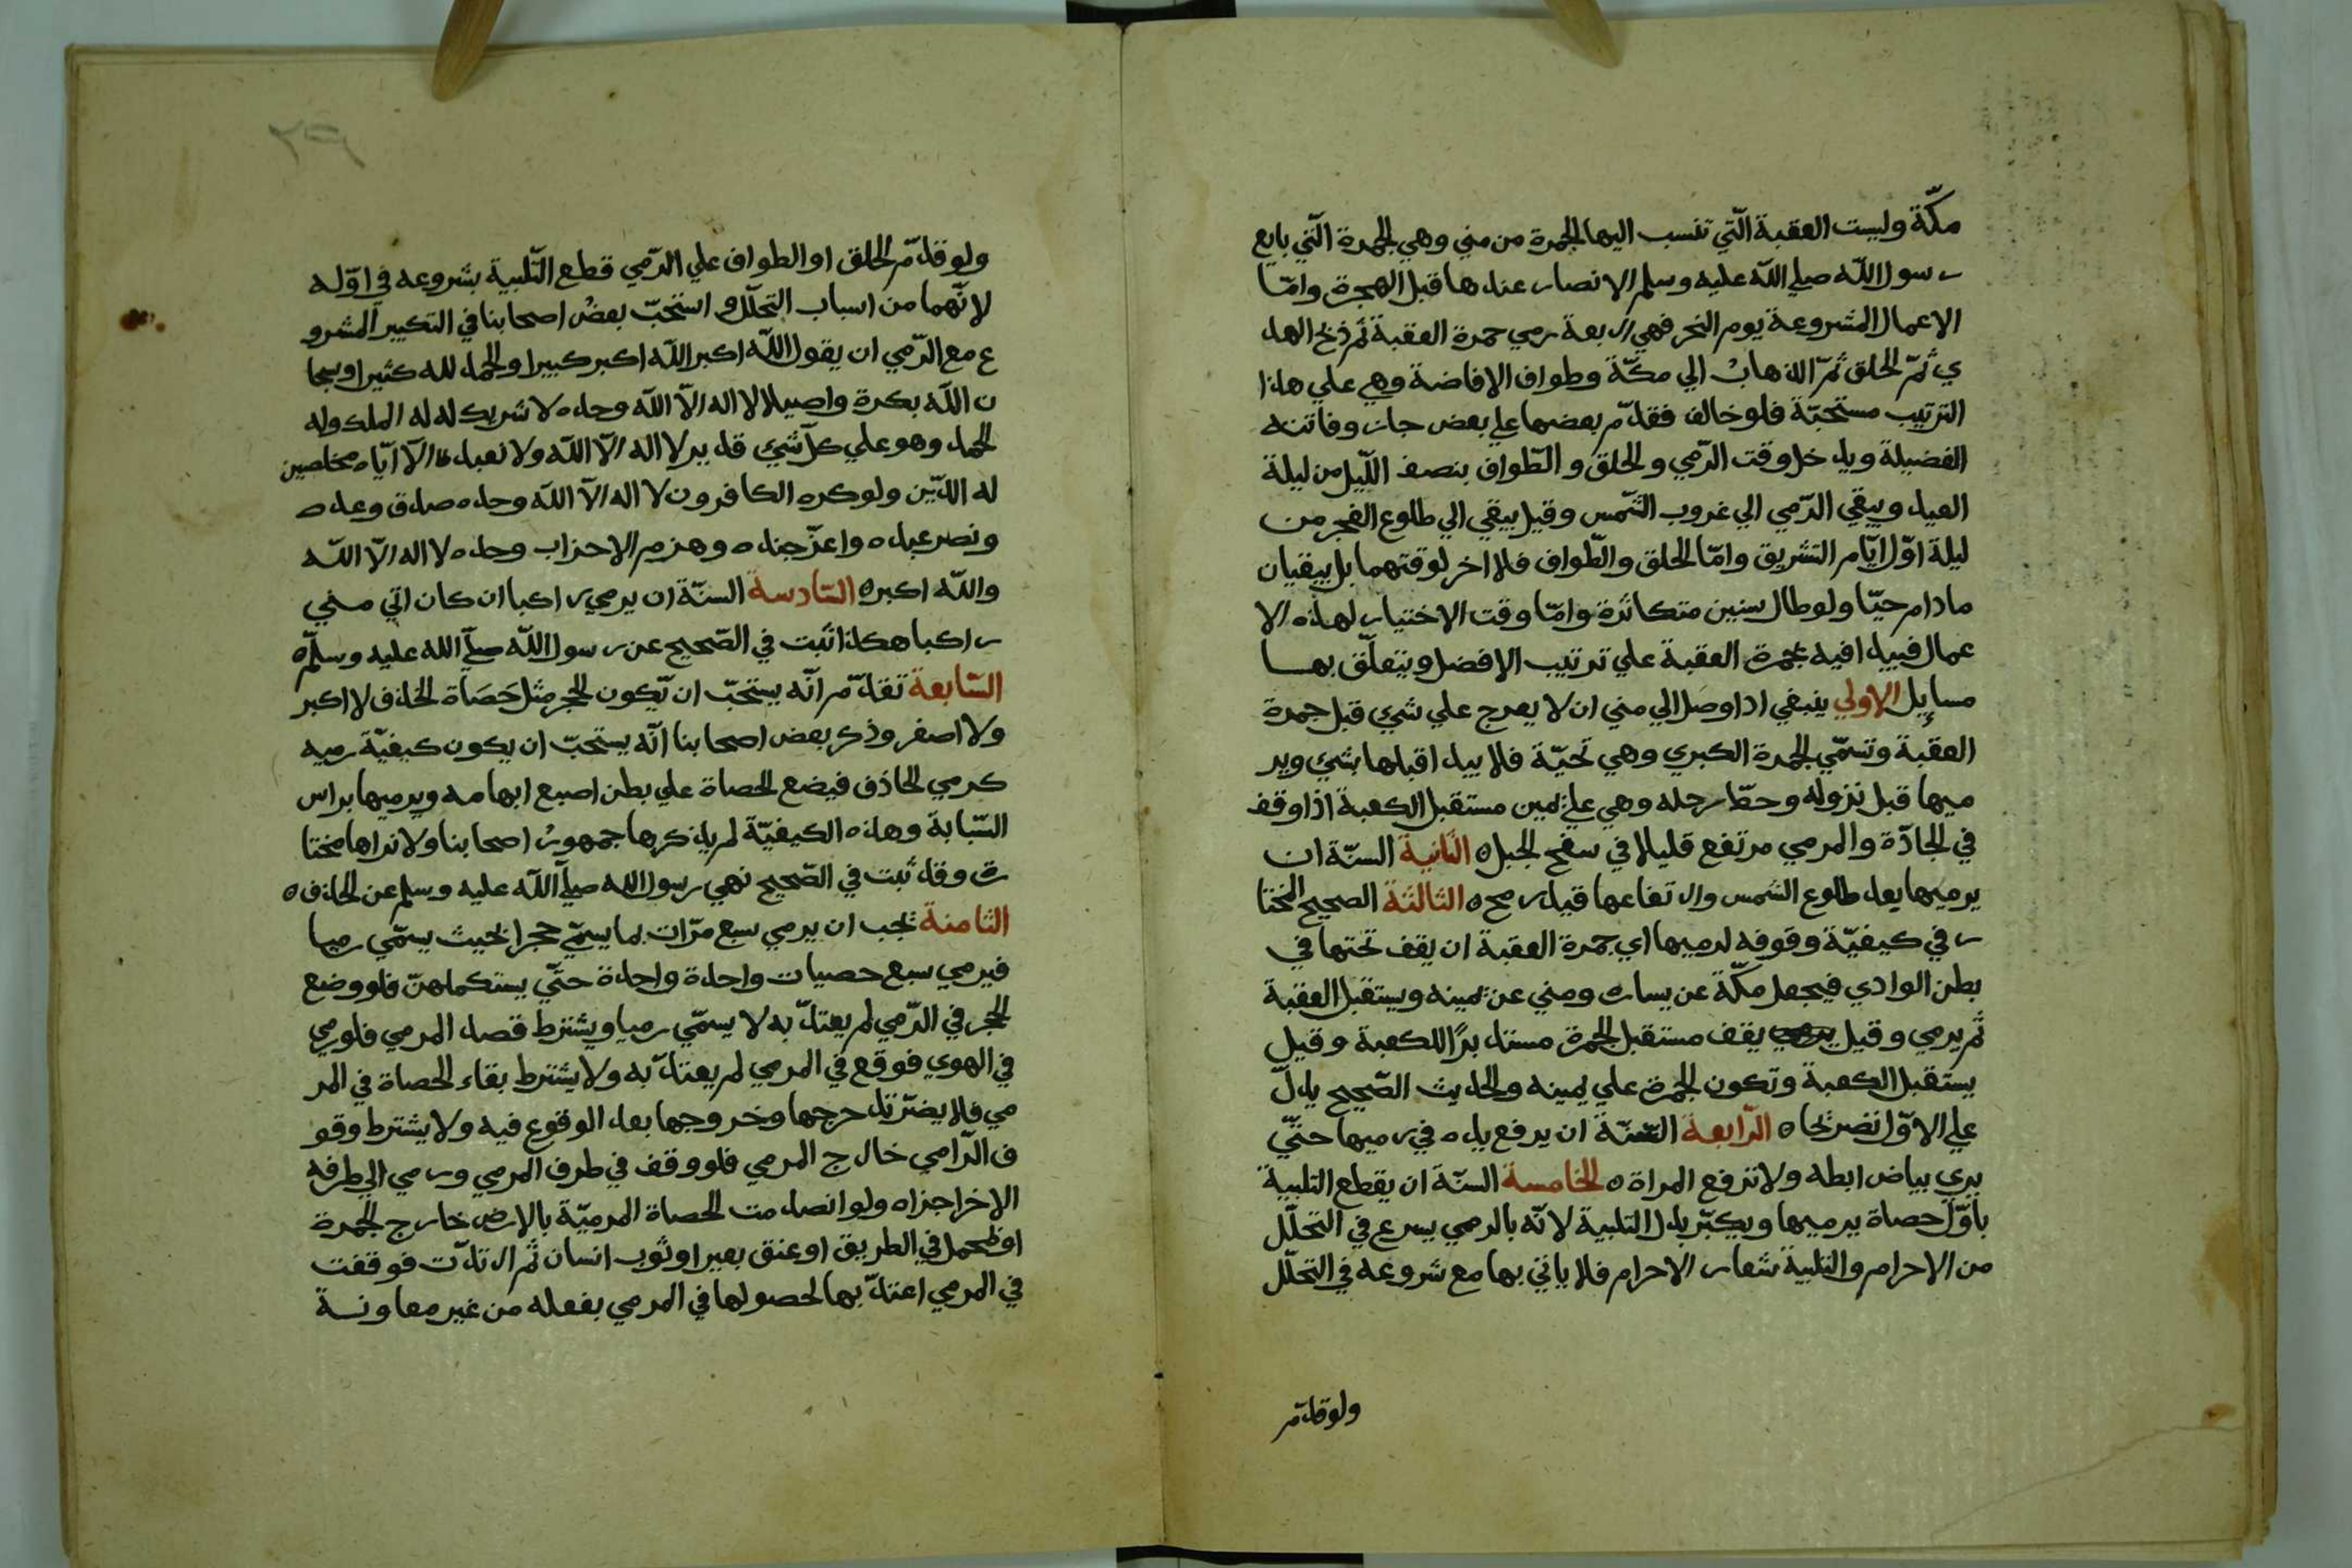 مكّة وليست العقبة الّتي تنسب اليها الجمرة من مني وهي الجمرة الّتي بايع
رسول اللّه صلي اللّه عليه وسلم الانصار عندها قبل الهجرة وامّا
الاعمال المشروعة يوم النحر فهي اربعة رمي جمرة العقبة ثم ذبح الهد
ي ثمّ الحلق ثمّ الذهابُ الي مكّة وطواف الافاضة وهي علي هذا
الترتيب مستحبّة فلو خالف فقدّم بعضها علي بعض جاز وفاتته
الفضيلة ويدخل وقت الرّمي والحلق والطّواف بنصف اللّيل من ليلة
العيد ويبقي الرّمي الي غروب الشّمس وقيل يبقي الي طلوع الفجر من
ليلة اوّل ايّام التشريق وامّا الحلق والطّواف فلا اخر لوقتهما بل يبقيان
مادام حيّا ولو طال سنين متكاثرة وامّا وقت الاختيار لهذه الا
عمال فيبدا فيه بجمرة العقبة علي ترتيب الافضل ويتعلّق بها
مسايل الاولي ينبغي اذا وصل الي مني ان لا يعرج علي شي قبل جمرة
العقبة وتسمّي الجمرة الكبري وهي تحيّة فلا يبدا قبلها بشي وير
ميها قبل نزوله وحطّ رحله وهي علي يمين مستقبل الكعبة اذا وقف
في الجادّة والمرمي مرتفع قليلا في سفح الجبل ه الثانية السنّة ان
يرميها بعد طلوع الشمس وارتفاعها قيد رمح ه الثالثة الصحيح المختا
ر في كيفيّة وقوفه لرميها اي جمرة العقبة ان يقف تحتها في
بطن الوادي فيجعل مكّة عن يساره ومني عن يمينه ويستقبل العقبة
ثم يرمي وقيل يقف مستقبل الجمرة مستدبرًا للكعبة وقيل
يستقبل الكعبة وتكون الجمرة علي يمينه والحديث الصّحيح يدلّ
علي الاوّل نصريحا ه الرّابعة السّنّة ان يرفع يده في رميها حتّي
يري بياض ابطه ولا ترفع المراة ه الخامسة السنّة ان يقطع التلبية
باوّل حصاة يرميها ويكبّر بدل التلبية لانّه بالرمي يسرع في التحلّل
من الاحرام والتلبية شعار الاحرام فلا ياتي بها مع شروعه في التحلّل
ولو قدّم
٣٩
ولو قدّم الحلق او الطواف علي الرّمي قطع التّلبية بشروعه في اوّله
لانّهما من اسباب التحلّل و استحبّ بعضُ اصحابنا في التكبير المشرو
ع مع الرّمي ان يقول اللّه اكبر اللّه اكبر كبيرا والحمد لله كثيرا وسبحا
ن اللّه بكرة واصيلا لا اله الاّ اللّه وحده لا شريك له له الملك وله
الحمد وهو علي كلّ شي قدير لا اله الاّ اللّه ولا نعبد الاّ ايّاه مخلصين
له الدّين ولو كره الكافرون لا اله الاّ اللّه وحده صدق وعده
ونصر عبده واعزّ جنده وهزم الاحزاب وحده لا اله الاّ اللّه
واللّه اكبر ه السّادسة السنّة ان يرمي راكبا ان كان اتي مني
راكبا هكذا ثبت في الصّحيح عن رسول اللّه صلّي الله عليه وسلّم ه
السّابعة تقدّم انّه يستحبّ ان يّكون الحجر مثل حَصَاة الخذف لا اكبر
ولا اصغر وذكر بعض اصحابنا انّه يستحبّ ان يكون كيفيّة رميه
كرمي الخاذف فيضع الحصاة علي بطن اصبع ابهامه ويرميها براس
السّبابة وهذه الكيفيّة لم يذكرها جمهورُ اصحابنا ولا نراها مختا
رة وقد ثبت في الصّحيح نهي رسول الله صلّي اللّه عليه وسلم عن الخذف ه
الثامنة يجب ان يرمي سبع مرّات بما يسمّي حجرا بحيث يسمّي رميا
فيرمي سبع حصيات واحدة واحدة حتّي يستكملهنّ فلو وضع
الحجر في الرّمي لم يعتدّ به لا يسمّي رميا ويشترط قصد المرمي فلو رمي
في الهوي فوقع في المرمي لم يعتدّ به ولا يشترط بقاء الحصاة في المر
مي فلا يضرّ تدحرجها وخروجها بعد الوقوع فيه ولا يشترط وقو
ف الرّامي خارج المرمي فلو وقف في طرف المرمي ورمي الي طرفه
الاخر اجزاه ولو انصدمت الحصاة المرميّة بالارض خارج الجمرة
او بمحمل في الطريق او عنق بعير او ثوب انسان ثم ارتدّت فوقفت
في المرمي اعتدّ بها لحصولها في المرمي بفعله من غير معاونة